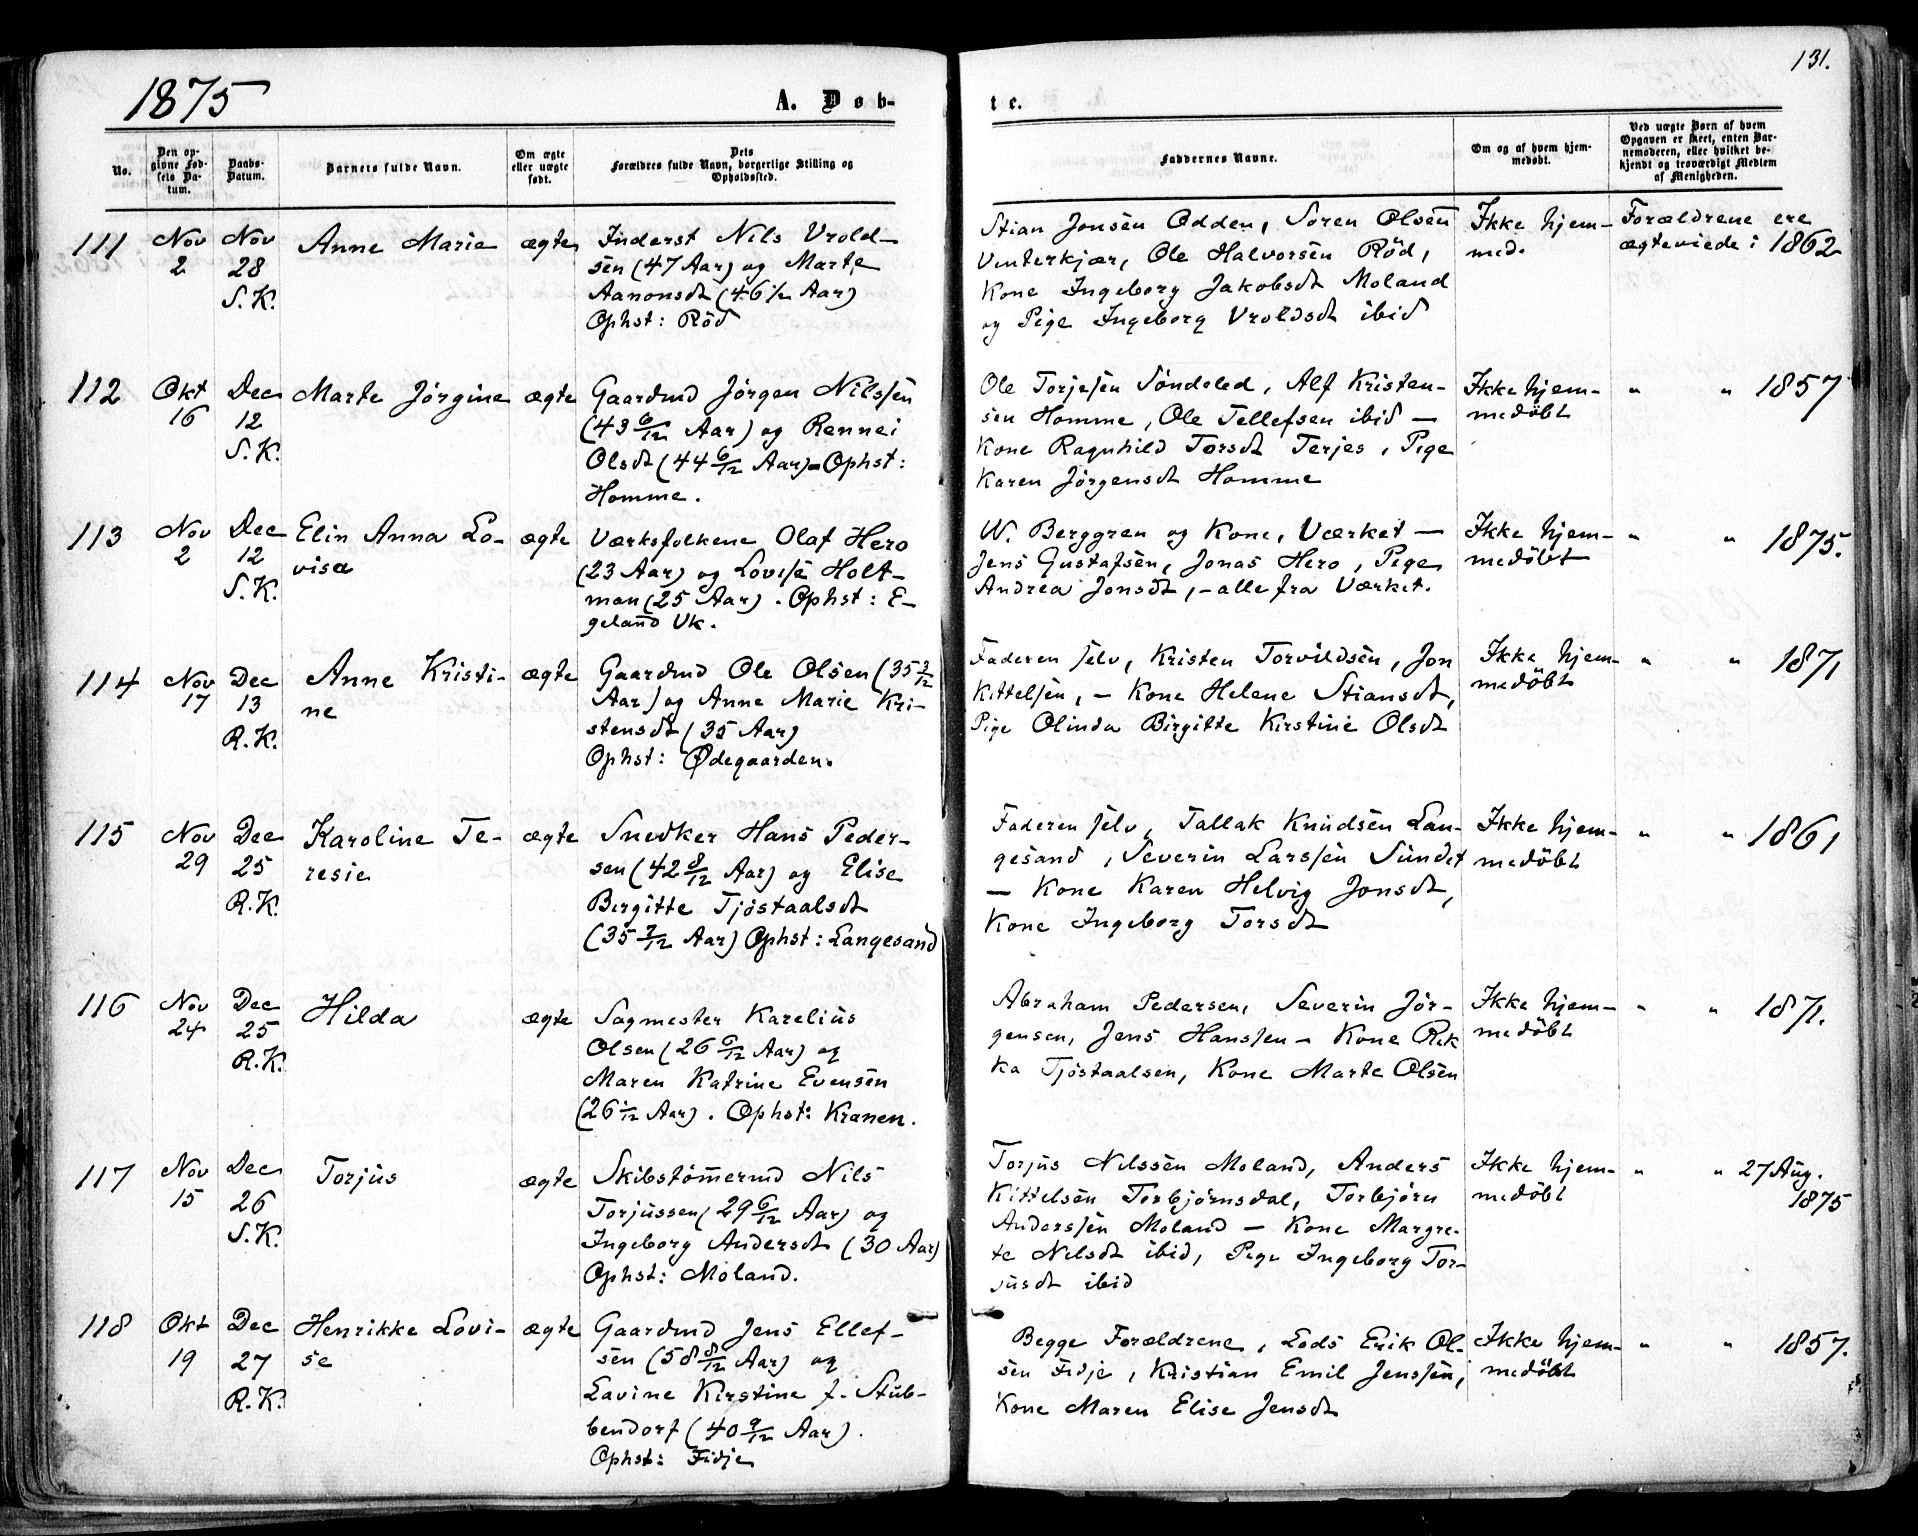 1875
A. Døb-
te.
131.
No.
Den op-
givne Fød-
sels Da-
tum.
Daabs-
Datum.
Barnets fulde Navn.
Om ægte
eller uægte
født.
Dets
Forældres fulde Navn, borgerlige Stilling og
Opholdssted.
Faddernes Navne.
Om og af hvem hjem-
medøbt.
Ved uægte Børn af hvem
Opgaven er skeet, enten Bar-
nemoderen, eller hvilket be-
kjendt og troværdigt Medlem
af Menigheden.
111
Nov
2
Nov
28
S. K.
Anne Marie
ægte
Inderst Nils Vrold-
sen (47 Aar) og Marte
Aanonsdt (46 1/2 Aar)
Ophst: Röd
Stian Jonsen Odden, Soren Olsen
Vinterkjær, Ole Halvorsen Röd,
Kone Ingeborg Jakobsdt Moland
og Pige Ingeborg Vroldsdt ibid
Ikke hjem-
med.
Forældrene ere
ægteviede i 1862
112
Okt
16
Dec
12
S. K.
Marte Jørgine
ægte
Gaardmd Jørgen Nilssen
(43 6/12 Aar) og Rennei
Olsdt (44 6/12 Aar) - Ophst:
Homme.
Ole Torjesen Söndeled, Alf Kristen-
sen Homme, Ole Tellefsen ibid —
Kone Ragnhild Torsdt Terjes, Pige
Karen Jörgensdt Homme
Ikke hjem-
medöbt
" " 1857
113
Nov
2
Dec
12
S. K.
Elin Anna Lo-
visa
ægte
Værksfolkene Olaf Hero
(23 Aar) og Lovise Holt-
man (25 Aar). Ophst: E-
geland Vk.
W. Berggren og Kone, Værket —
Jens Gustafsen, Jonas Hero, Pige
Andrea Jonsdt, - alle fra Værket.
Ikke hjem-
medöbt
" " 1875.
114
Nov
17
Dec
13
R. K.
Anne Kristi-
ne
ægte
Gaardmd Ole Olsen (35 3/12
Aar) og Anne Marie Kri-
stensdt (35 Aar)
Ophst: Ødegaarden.
Faderen selv, Kristen Torvildsen, Jon
Kittelsen, - Kone Helene Stiansdt,
Pige Olinda Birgitte Kirstine Olsdt
Ikke hjem-
medöbt
" " 1871
115
Nov
29
Dec
25
R. K.
Karoline Te-
resie
ægte
Snedker Hans Peder-
sen (42 8/12 Aar) og Elise
Birgitte Tjöstaalsdt
(35 7/12 Aar) Ophst: Langesand
Faderen selv, Tallak Knudsen Lan-
gesand, Severin Larssen Sundet
— Kone Karen Helvig Jonsdt,
Kone Ingeborg Torsdt
Ikke hjem-
medöbt
" " 1861
116
Nov
24
Dec
25
R. K.
Hilda
ægte
Sagmester Karelius
Olsen (26 6/12 Aar) og
Maren Katrine Evensen
(26 1/12 Aar). Ophst: Kranen.
Abraham Pedersen, Severin Jör-
gensen, Jens Hanssen - Kone Rik
ka Tjöstaalsen, Kone Marte Olsen
Ikke hjem-
medöbt
" " 1871.
117
Nov
15
Dec
26
S. K.
Torjus
ægte
Skibstömermd Nils
Torjussen (29 6/12 Aar) og
Ingeborg Andersdt (30 Aar)
Ophst: Moland.
Torjus Nilssen Moland, Anders
Kittelsen Torbjörnsdal, Torbjörn
Anderssen Moland — Kone Margre-
te Nilsdt ibid, Pige Ingeborg Tor-
jusdt ibid
Ikke hjem-
medöbt
" " 27 Aug.
1875
118
Okt
19
Dec
27
R. K.
Henrikke Lovi-
se
ægte
Gaardmd Jens Ellef-
sen (58 8/12 Aar) og
Lavine Kirstine f. Stub-
bendorf (40 9/12 Aar).
Ophst: Fidje
Begge Forældrene, Lods Erik Ol-
sen Fidje, Kristian Emil Jenssen,
Kone Maren Elise Jensdt
Ikke hjem-
medöbt
" " 1857.